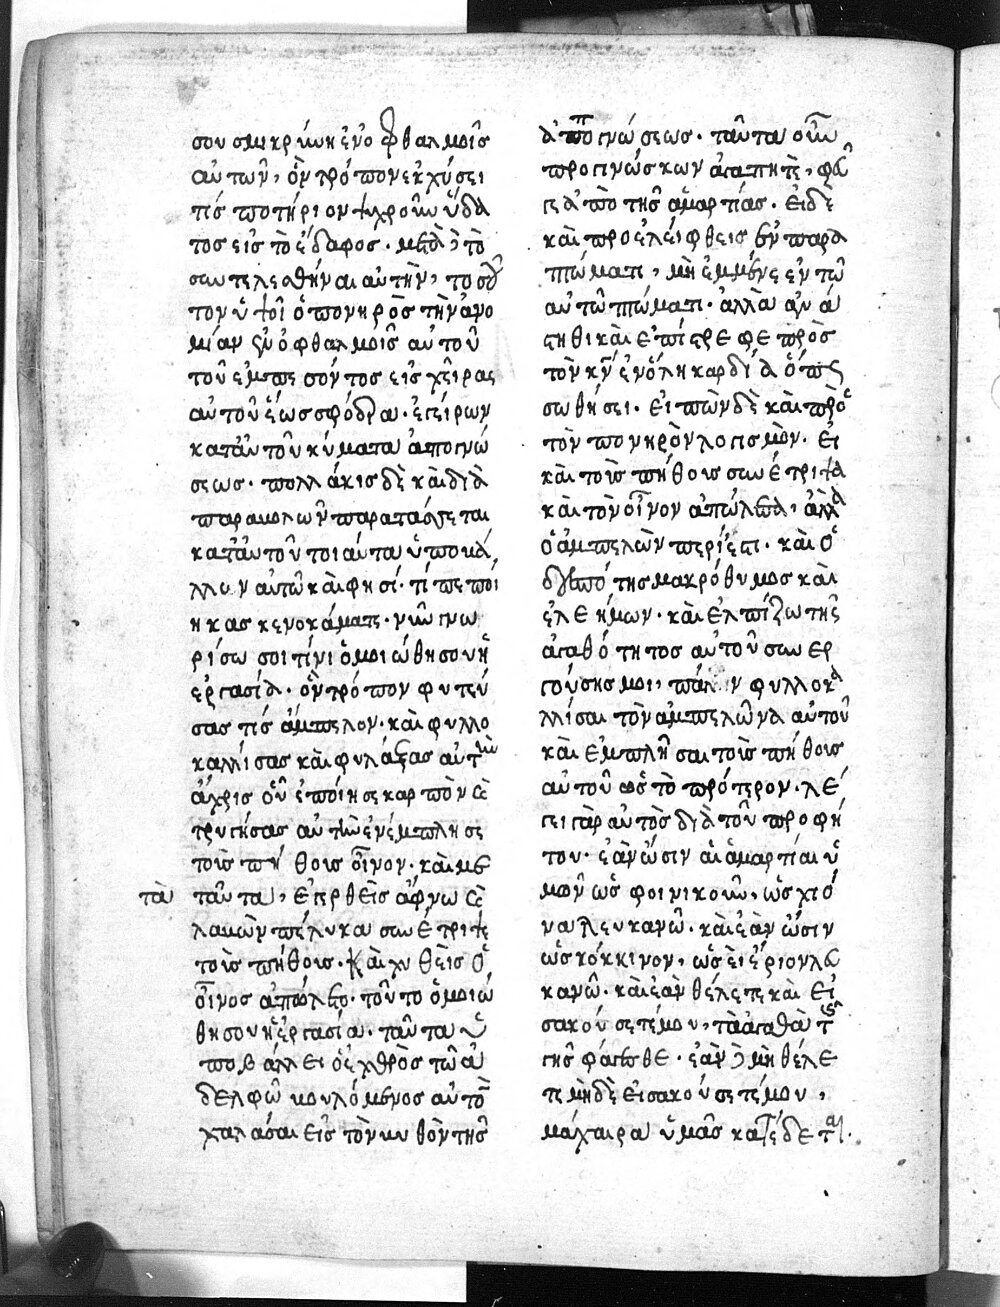 σου σμικρύνη ἐν ὀφθαλμοῖς
αὐτῶν, ὃν τρόπον ἐκχύσει
τίς ποτήριον ψυχροῦ ὕδα
τος εἰς τὸ ἔδαφος. μετὰ δὲ τὸ
συντελεσθῆναι αὐτὴν, τοσοῦ
τον ὑψοῖ ὁ πονηρὸς τὴν ἀνο
μίαν ἐν ὀφθαλμοῖς αὐτοῦ
τοῦ ἐμπεσόντος εἰς χεῖρας
αὐτοῦ ἕως σφόδρα. ἐγείρων
κατ' αὐτοῦ κύματα ἀπογνώ
σεως. πολλάκις δὲ καὶ διὰ
παραβολῶν παρατάσσεται
κατ' αὐτοῦ τοιαῦτα ὑποβά
λλων αὐτῶ καὶ φησί. τί πεποί
ηκας κενοκάματε. νῦν γνω
ρίσω σοι τίνι ὁμοιώθη σου ἡ
ἐργασία. ὃν τρόπον φυτεύ
σας τίς ἄμπελον. καὶ φυλλο
καλλίσας καὶ φυλάξας αὐτὴν
ἄχρις οὗ ἐποίησε καρπὸν καὶ
τρυγήσας αὐτὴν ἐνέμπλησε
τοὺς πήθους οἶνον. καὶ με
τὰ ταῦτα, ἐγερθεὶς ἄφνω καὶ
λαβὼν πέλυκα συνέτριψε
τοὺς πήθους. καὶ χυθεὶς ὁ
οἶνος ἀπώλετο. τοῦτο ὁμοιώ
θη σου ἡ ἐργασία. ταῦτα ὑ
ποβάλλει ὁ ἐχθρὸς τῶ ἀ
δελφῶ βουλόμενος αὐτὸν
χαλάσαι εἰς τὸν βυθὸν τῆς
ἀπογνώσεως. ταῦτα οὖν
προγινώσκων ἀγαπητὲ, φεῦ
γε ἀπὸ τῆς ἁμαρτίας. εἰ δὲ
καὶ προελείφθεις ἐν παρα
πτώματι, μὴ ἔμμενε ἐν τῶ
αὐτῶ πτώματι. ἀλλὰ ἀνά
στηθι καὶ ἐπίστρεφε πρὸς
τὸν κν ἐν ὅλη καρδία ὅπως
σωθήσει. εἰπὼν δὲ καὶ πρὸς
τὸν πονηρὸν λογισμὸν. εἰ
καὶ τοὺς πήθους συνέτριψα
καὶ τὸν οἶνον ἀπώλεσα, ἀλλὰ
ὁ ἀμπελὼν περίεστι. καὶ ὁ
δεσπότης μακρόθυμος καὶ
ἐλεήμων. καὶ ἐλπίζω τῆς
ἀγαθότητος αὐτοῦ συνερ
γούσης μοι, πάλιν φυλλοκα
λλίσαι τὸν ἀμπελῶνα αὐτοῦ
καὶ ἐμπλῆσαι τοὺς πήθους
αὐτοῦ ὡς τὸ πρότερον. λέ
γει γὰρ αὐτὸς διὰ τοῦ προφή
του. ἐὰν ὦσιν αἱ ἁμαρτίαι ὑ
μῶν ὡς φοινικοῦν, ὡς χιό
να λευκανῶ. καὶ ἐὰν ὦσιν
ὡς κόκκινον, ὡς εἰ ἔριον λευ
κανῶ. καὶ ἐὰν θέλετε καὶ εἰ
σακούσετέ μου, τὰ ἀγαθὰ τῆς
γῆς φάγεσθε. ἐὰν δὲ μὴ θέλε
τε μηδὲ εἰσακούσετέ μου,
μάχαιρα ὑμᾶς κατέδεται.